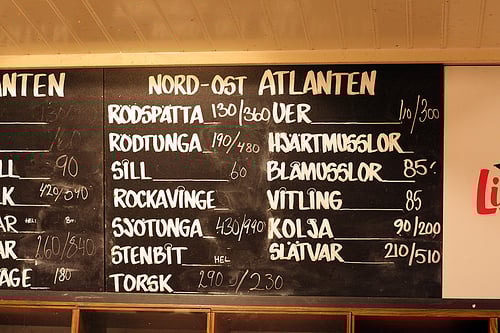 NORD-OST ATLANTEN
RÖDSPÄTTA 130/360
RÖDTUNGA 190/480
SILL 60
ROCKAVINGE
SJÖTUNGA 430/990
STENBIT HEL
TORSK 290 /230
UER 110/300
HJÄRTMUSSLOR
BLÅMUSSLOR 85:
VITLING 85
KOLJA 90/200
SLÄTVAR 210/510
NTEN
160
LL 90
LK 420/540
AR HEL
AR 260/540
ÄGE 180
Li